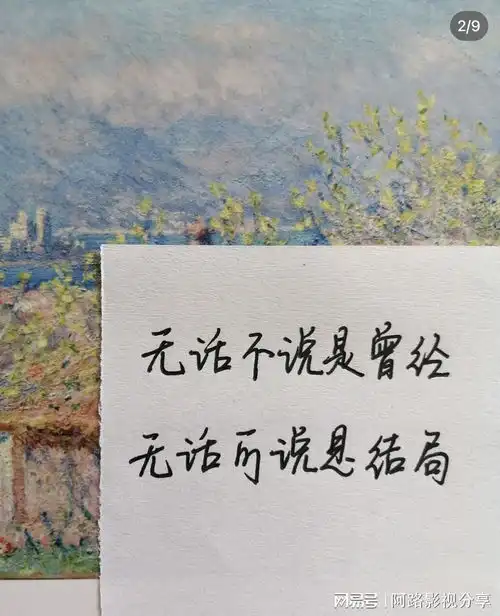 2/9
无话不说是曾经
无话可说是结局
网易号 | 阿路影视分享